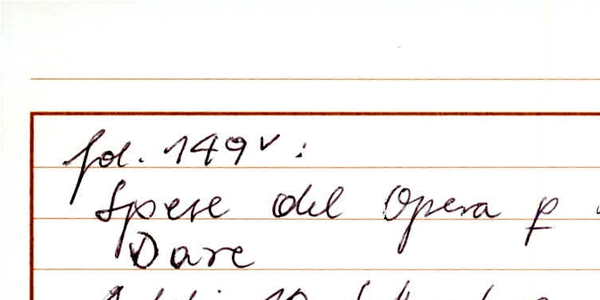 fol. 149v :
Spese del Opera p
Dare